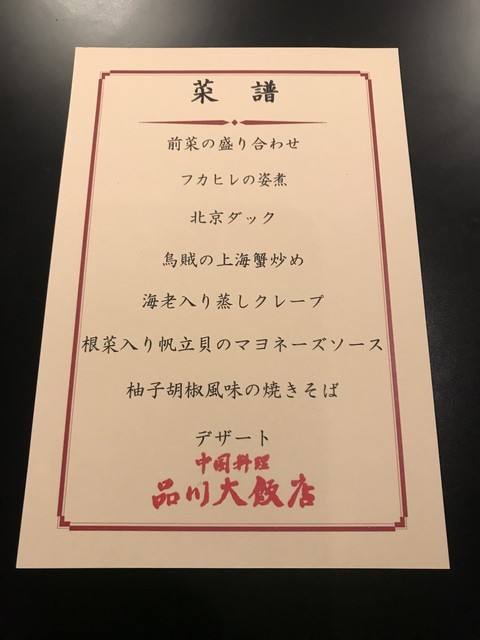 菜譜
前菜の盛り合わせ
フカヒレの姿煮
北京ダック
烏賊の上海蟹炒め
海老入り蒸しクレープ
根菜入り帆立貝のマヨネーズソース
柚子胡椒風味の焼きそば
デザート
中国料理
品川大飯店